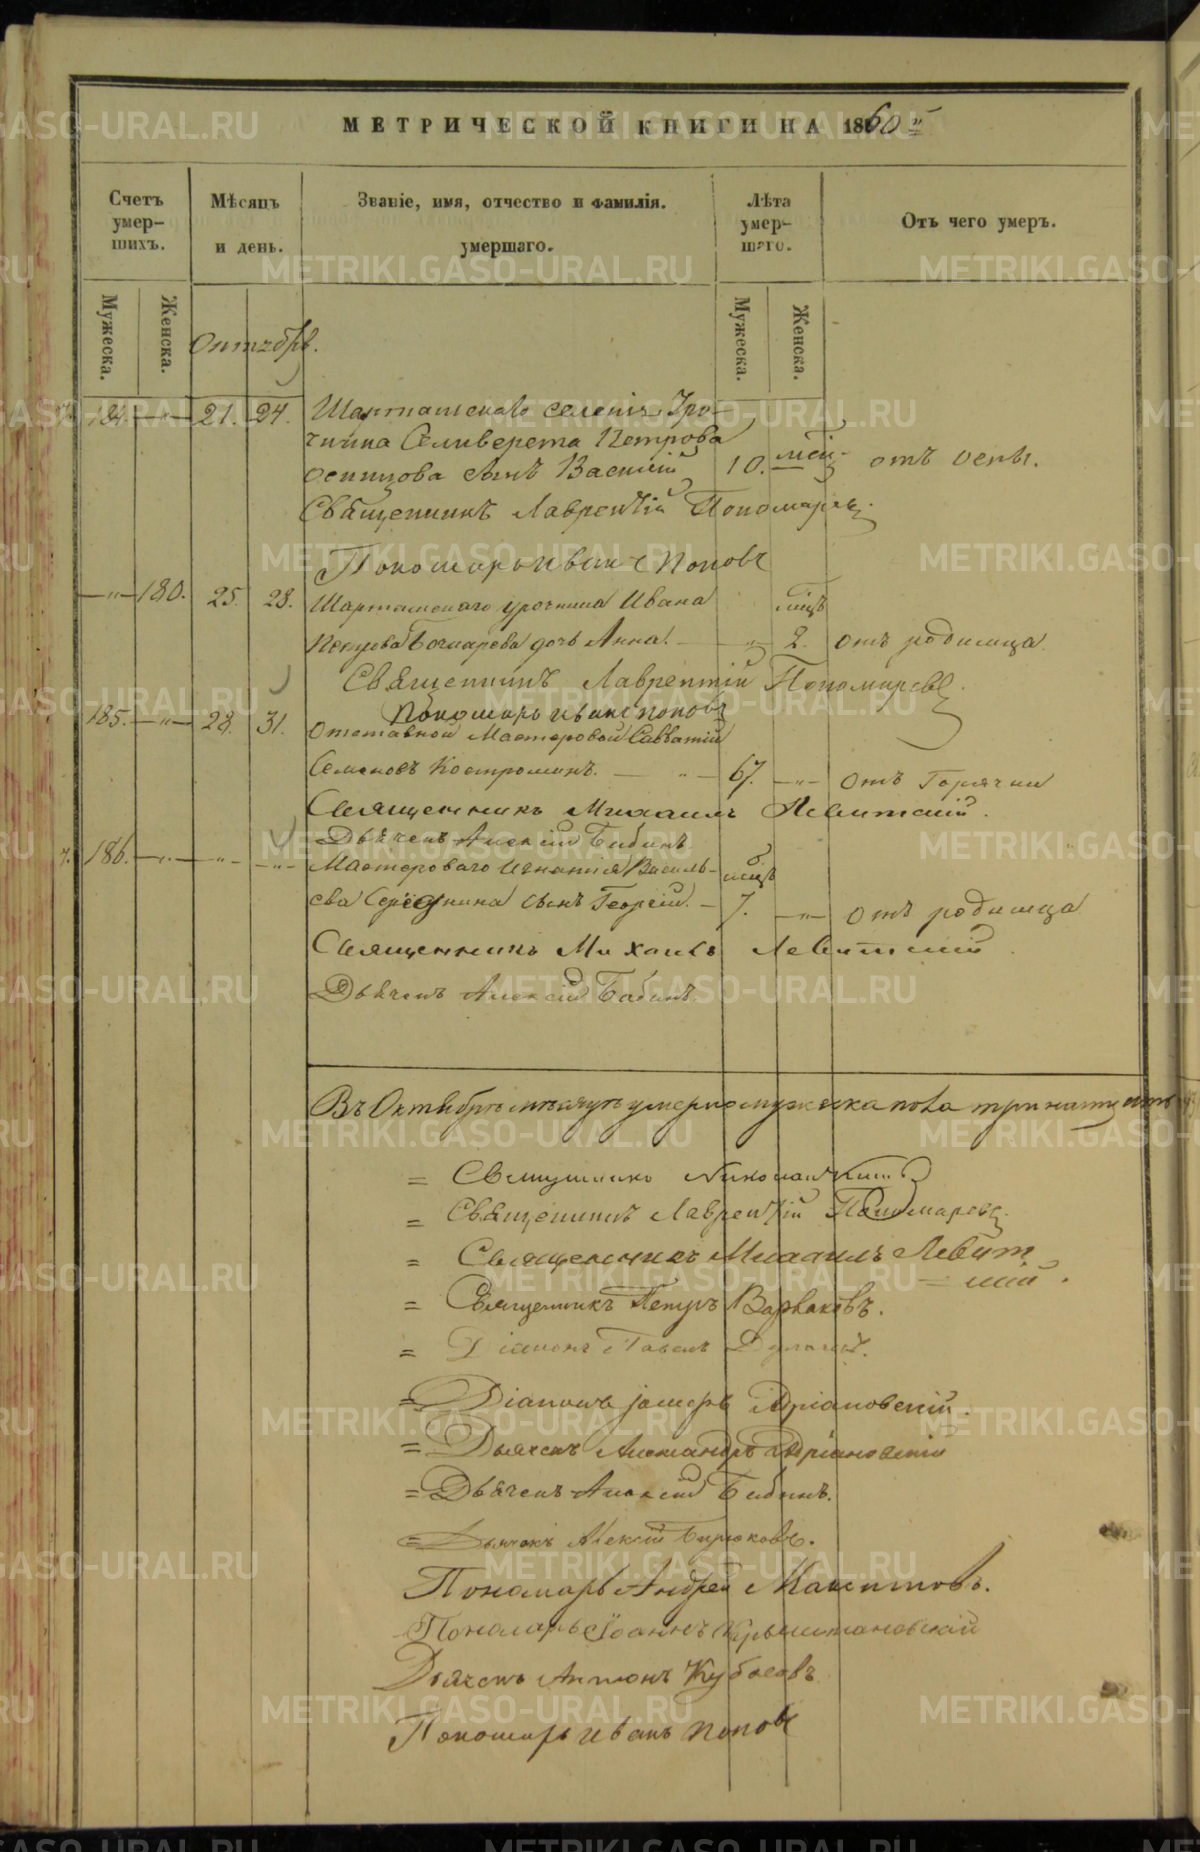 МЕТРИЧЕСКОЙ КНИГИ НА 1860 й
Счетъ умер-шихъ.
Мѣсяцъ и день.
Званіе, имя, отчество и фамилія. умершаго.
Лѣта умер-шаго.
Отъ чего умеръ.
Мужеска.
Женска.
Мужеска.
Женска.
Октябрь.
184. — " — 21. 24. Шарташскаго селенія Уро-
чника Селиверста Петрова
Осинцова сынъ Василій 10. мѣс. отъ оспы.
Священникъ Лаврентій Пономаревъ.
Пономарь Иванъ Поповъ
— " — 180. 25. 28. Шарташскаго урочника Ивана мѣсц
Бочкарева дочь Анна. — " 2. отъ родимца.
Священникъ Лаврентій Пономаревъ.
Пономарь Иванъ Поповъ
185. — " — 28. 31. Отставной Мастеровой Савватій
Семеновъ Костроминъ. — " — 67. — " — отъ Горячки
Священникъ Михаилъ Левитскій.
Дьячекъ Алексій Бабинъ
186. — " — — " — — " — Мастероваго Игнатія Василь-
ева сынъ Георгій. — мѣсц 7. — " — отъ родимца
Священникъ Михаилъ Левитскій.
Дьячекъ Алексій Бабинъ
Въ Октябрѣ мѣсяцѣ умерло мужеска пола тринадцать
= Священникъ Николай
= Священникъ Лаврентій Пономаревъ.
= Священникъ Михаилъ Левит
= скій.
= Священникъ Петръ Варваковъ.
= Діаконъ Павелъ
= Діаконъ Адріановскій.
= Дьячекъ Александръ Адріановскій
= Дьячекъ Алексій Бабинъ.
= Дьячекъ Алексій Бирюковъ.
Пономарь Андрей Макситовъ.
Пономарь Іоаннъ
Дьячекъ Антонъ Кубасовъ
Пономарь Иванъ Поповъ
METRIKI.GASO-URAL.RU